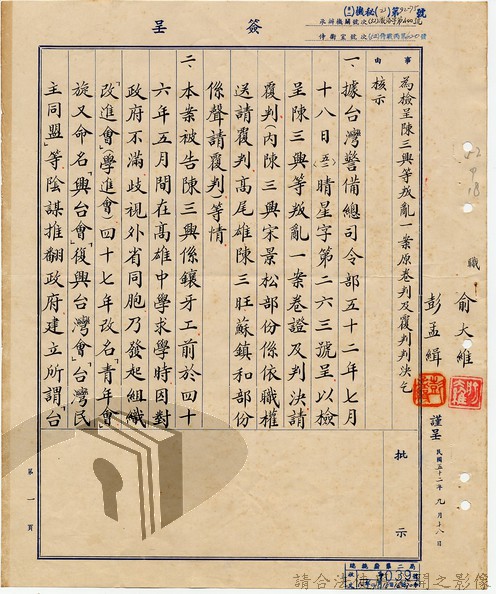 簽呈
為檢呈陳三興等叛亂一案原卷判及覆判判決乞
核示
一、據台灣警備總司令部五十二年七月
十八日晴星字第二六三號呈以檢
呈陳三興等叛亂一案卷證及判決請
覆判(內陳三興宋景松部份係依職權
送請覆判高尾雄陳三旺蘇鎮和部份
係聲請覆判)等情
二、本案被告陳三興係鑲牙工前於四十
六年五月間在高雄中學求學時因對
政府不滿歧視外省同胞乃發起組織
「學進會」(四十七年改名「青年會」
旋又命名「興台會」「復興台灣會」「台灣民
主同盟」等陰謀推翻政府建立所謂「台
事由
批示
職
俞大維
彭孟緝
謹呈
民國五十二年九月十八日
第一頁
總統府第二局
039